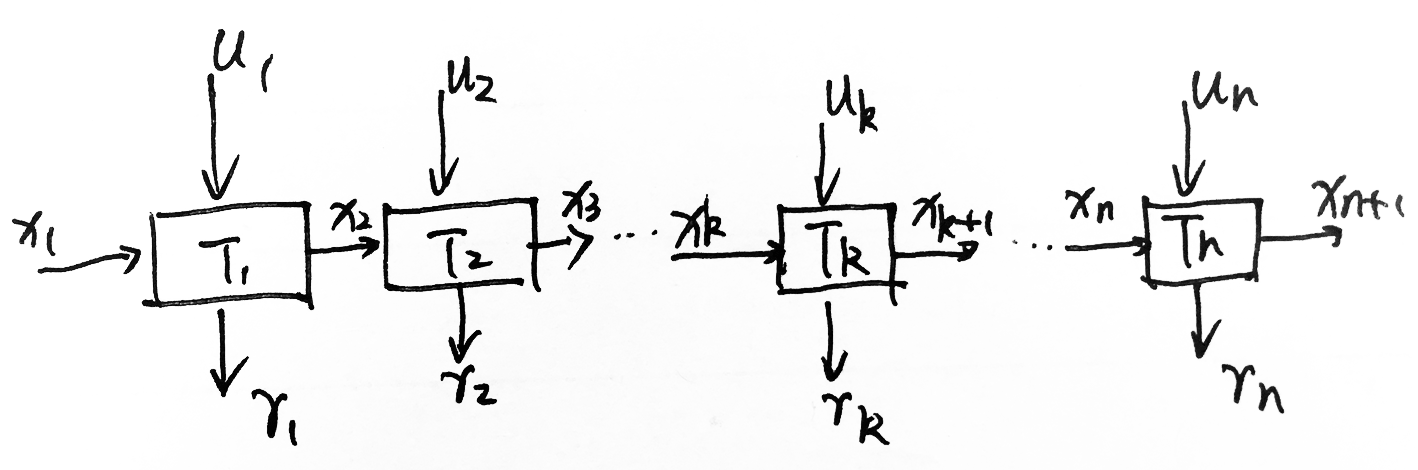 u₁ u₂ u_k u_n
x₁ T₁ x₂ T₂ x₃ ... x_k T_k x_{k+1} ... x_n T_n x_{n+1}
r₁ r₂ r_k r_n